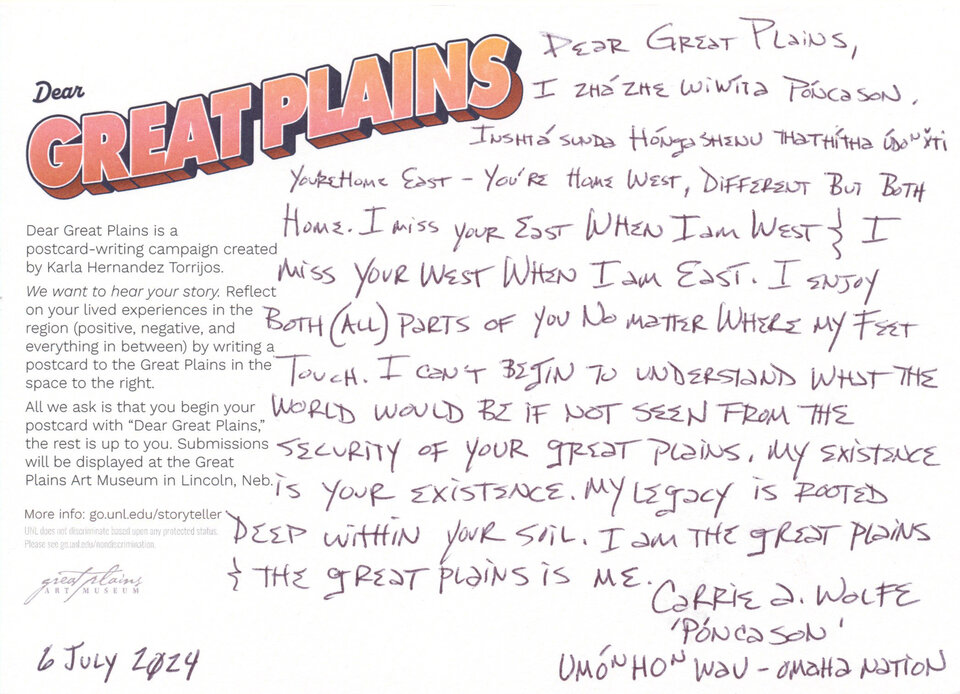 Dear
GREAT PLAINS
Dear Great Plains is a
postcard-writing campaign created
by Karla Hernandez Torrijos.
We want to hear your story. Reflect
on your lived experiences in the
region (positive, negative, and
everything in between) by writing a
postcard to the Great Plains in the
space to the right.
All we ask is that you begin your
postcard with “Dear Great Plains,”
the rest is up to you. Submissions
will be displayed at the Great
Plains Art Museum in Lincoln, Neb.
More info: go.unl.edu/storyteller
UNL does not discriminate based upon any protected status.
Please see go.unl.edu/nondiscrimination.
great plains
ART MUSEUM
6 July 2024
Dear Great Plains,
I zhá'zhe wiwíta Póncason.
Inshtá'sunda Hónga shenu thathítha údoⁿ xti
You're Home East - You're Home West, Different But Both
Home. I miss your East When I am West & I
miss your West When I am East. I enjoy
Both (All) parts of you No matter Where my Feet
Touch. I can't begin to understand what the
World would be if not seen from the
security of your great plains. My existence
is your existence. My legacy is rooted
deep within your soil. I am the great plains
& the great plains is me.
Carrie A. Wolfe
'Póncason'
Umóⁿhoⁿ Wau - Omaha Nation